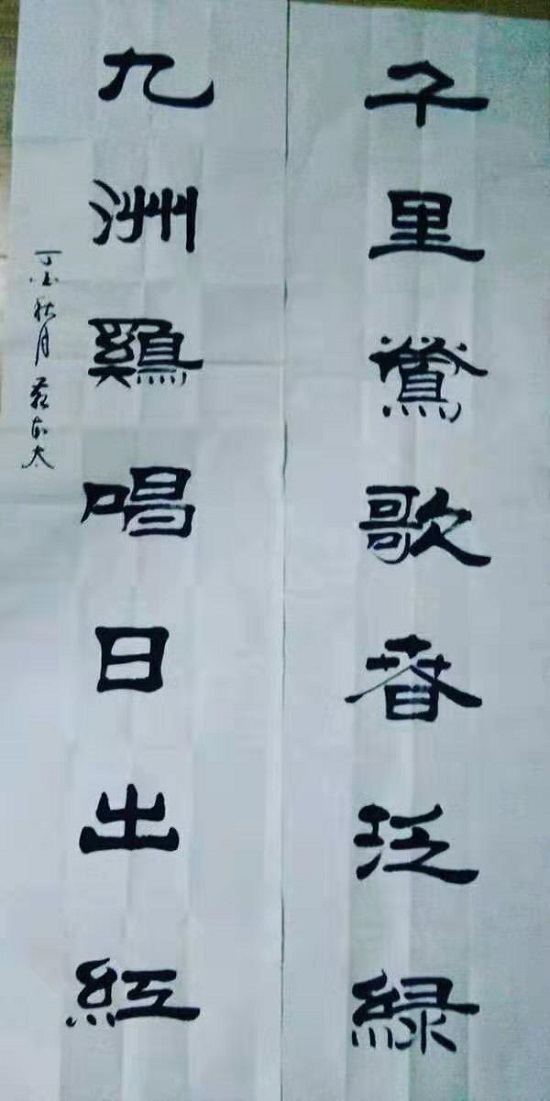 千里鶯歌春泛緑
九洲鷄唱日出紅
丁酉秋月